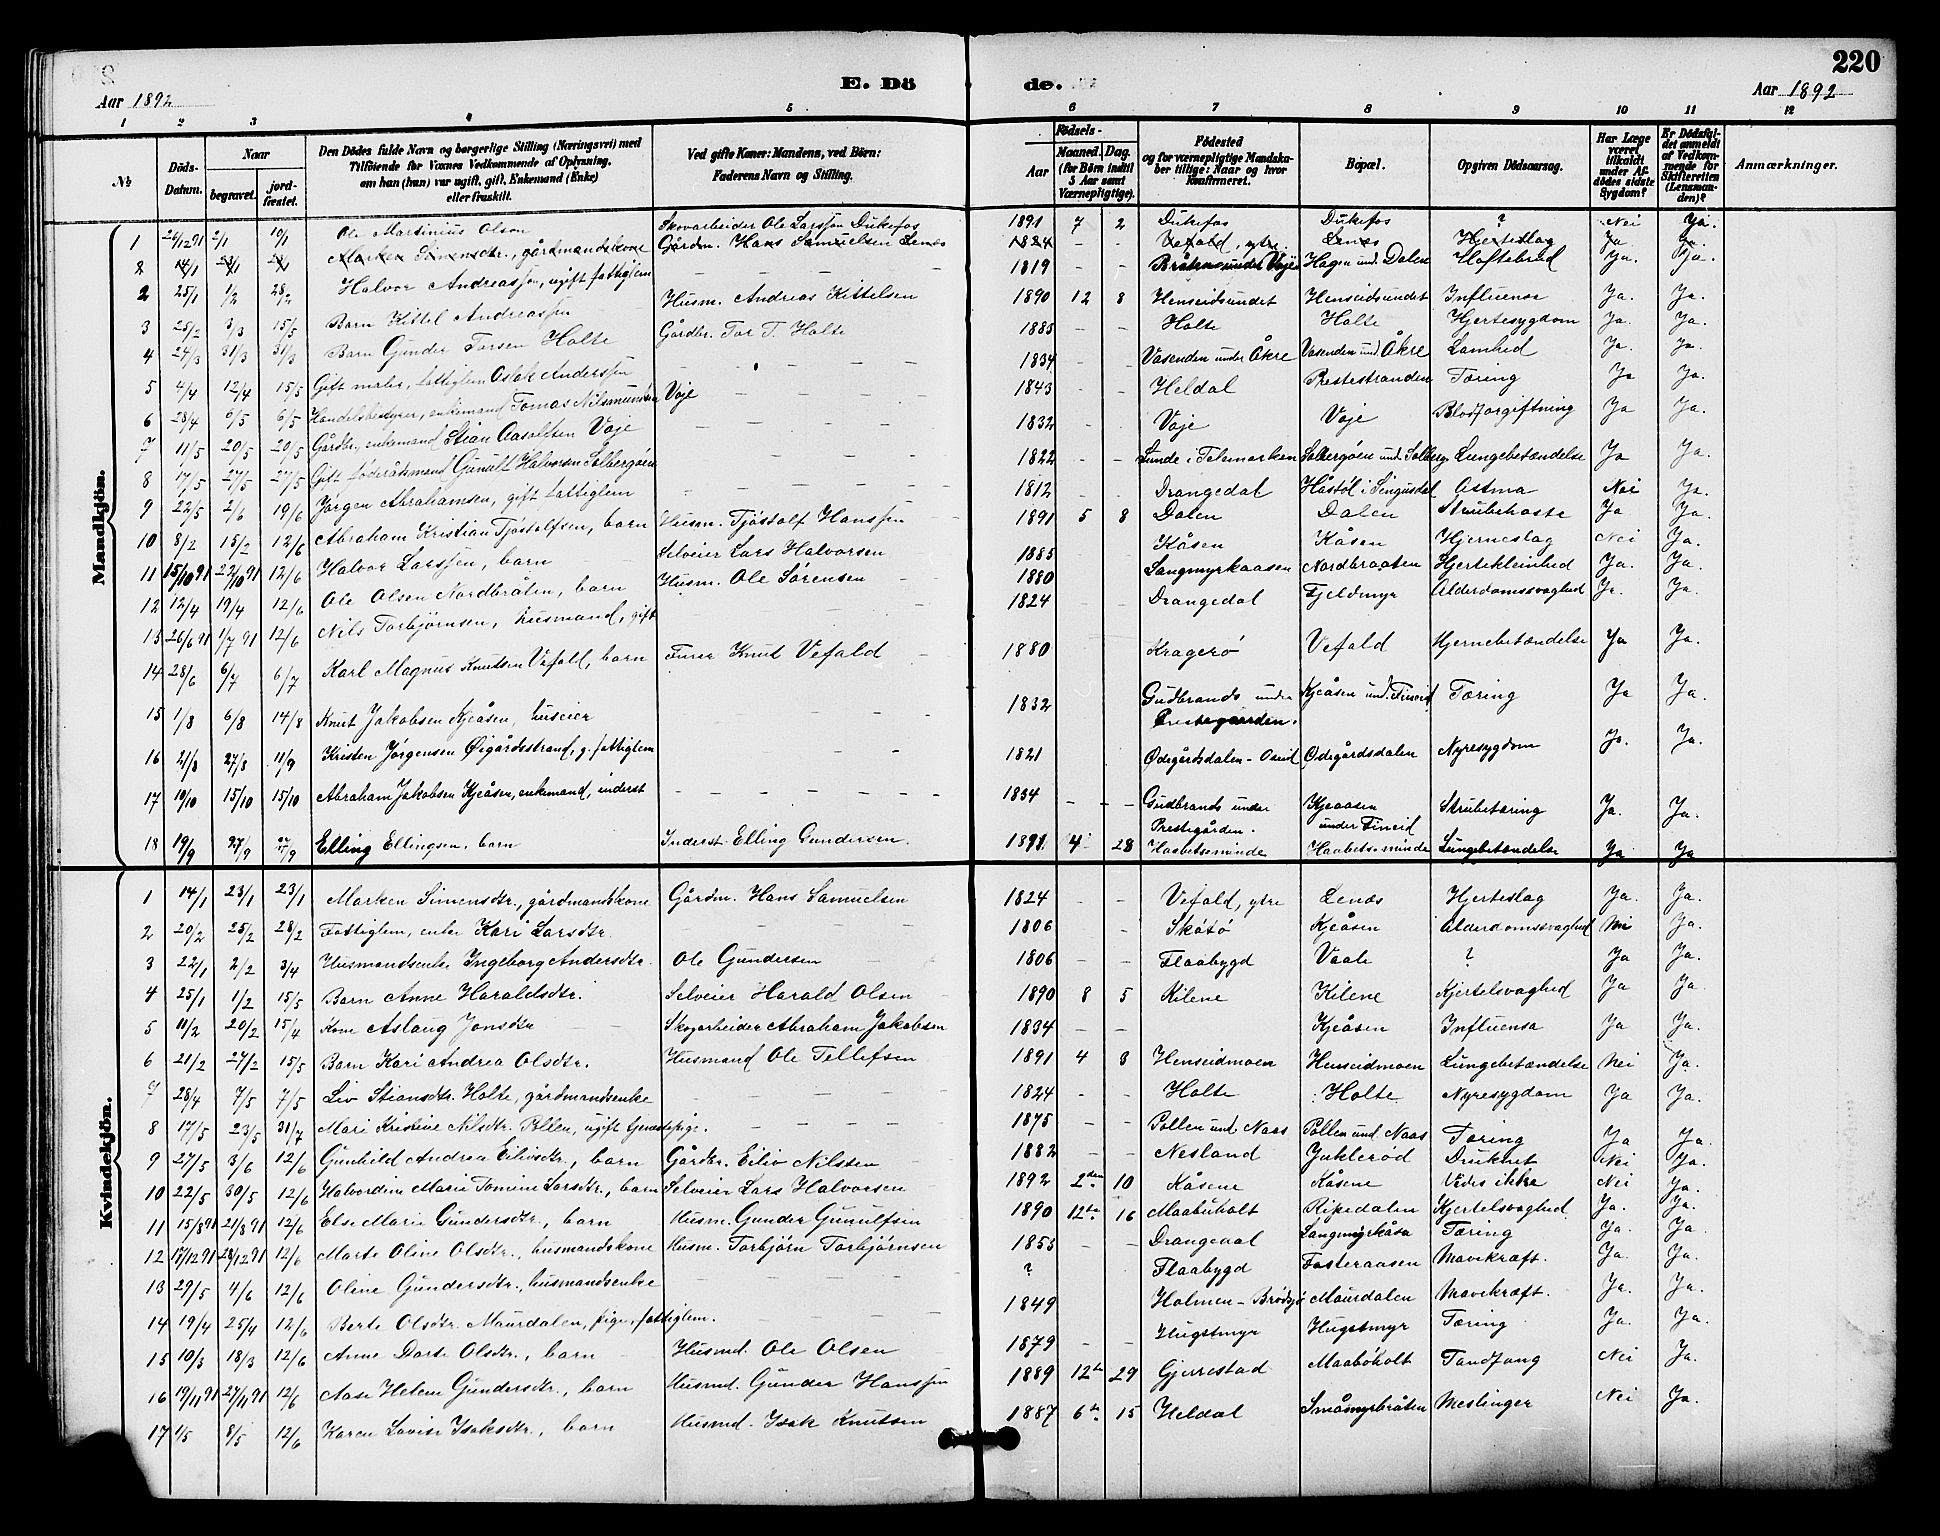 220
E. Dö de.
Aar 1892 Aar 1892
1 2 3 4 5 6 7 8 9 10 11 12
No
Döds-Datum.
Naar
begravet.
jord-fæstet.
Den Dödes fulde Navn og borgerlige Stilling (Næringsvei) med Tilföiende for Voxnes Vedkommende af Oplysning, om han (hun) var ugift, gift, Enkemand (Enke) eller fraskilt.
Ved gifte Koner: Mandens, ved Börn: Faderens Navn og Stilling.
Födsels-
Aar
Maaned. Dag. (for Börn indtil 5 Aar samt Værnepligtige).
Födested og for værnepligtige Mandskaber tillige: Naar og hvor Konfirmeret.
Bopæl.
Opgiven Dödsaarsag.
Har Læge været tilkaldt under Afdödes sidste Sygdom?
Er Dödsfaldet anmeldt af Vedkommende for Skifteretten (Lensmanden)?
Anmærkninger.
Mandkjön.
1 26/12 91 2/1 10/1 Ole Martinius Olson Skovarbeider Ole Larssøn Dukefos 1891 7 2 Dukefos Dukefos ? Nei Ja.
2 14/1 23/1 23/1 Marken Simensdtr., gårdmandskone Gårdm. Hans Samuelsen Lenes 1824 - - Vefald, ytre Lenes Hjerteslag Ja Ja.
2 25/1 1/2 28/2 Halvor Andreassen, ugift fattiglem - - - - 1819 - - Bråten under Voje Hagen und. Dalene Hoftebrud Ja. Ja.
3 25/2 3/3 15/5 Barn Kittel Andreassen Husm. Andreas Kittelsen 1890 12 8 Henseidsundet Henseidsundet Influensa Ja. Ja.
4 24/3 31/3 31/3 Barn Gunder Torsen Holte Gårdbr. Tor T. Holte 1885 - - Holte Holte Hjertesygdom Ja. Ja.
5 4/4 12/4 15/5 Gift maler, fattiglem Aslak Anderssen 1834 - - Vasenden under Åkre Vasenden und. Åkre Lamhed Ja Ja.
6 28/4 6/5 6/5 Handelsbestyrer, enkemand Tomas Nilsmundsen Voje 1843 - - Heldal Prestestranden Tæring Ja Ja.
7 11/5 20/5 20/5 Gårdbr., enkemand Stian Aasoldsen Voje 1832 - - Voje Voje Blodforgiftning Ja Ja.
8 17/5 27/5 27/5 Gift föderådsmand Gunult Halvorsen Solbergøen 1822 - - Lunde i Telemarken Solbergöen und. Solberg Lungebetændelse Ja Ja.
9 22/5 2/6 19/6 Jørgen Abrahamsen, gift fattiglem 1812 - - Drangedal Håstöl i Singusdal Astma Nei Ja.
10 8/2 15/2 12/6 Abraham Kristian Tjöstolfsen, barn Husm. Tjöstolf Hanssen 1891 5 8 Dalen Dalen Strubehoste Ja Ja.
11 15/10 91 22/10 91 12/6 Halvor Larssen, barn Selveier Lars Halvorsen 1885 Kåsen Kåsen Hjerneslag Nei Ja.
12 12/4 19/4 12/6 Ole Olsen Nordbråten, barn Husm. Ole Sørensen 1880 Langmyrkaasen Nordbraaten Hjertekleinhed Ja. Ja.
13 26/6 91 1/7 91 12/6 Nils Torbjørnsen, husmand, gift 1824 Drangedal Fjeldmyr Alderdomssvaghed Ja. Ja.
14 28/6 6/7 6/7 Karl Magnus Knutsen Vefald, barn Furer Knut Vefald 1880 Kragerø Vefald Hjernebetændelse Ja Ja.
15 1/8 6/8 14/8 Knut Jakobsen Kjeåsen, huseier 1832 Gudbrands under Prestegaarden. Kjeåsen und. Fineid Tæring Ja Ja.
16 21/8 27/8 11/9 Kristen Jørgensen Øigårdsstrand, g. fattiglem 1821 Ödegårdsdalen - Oseid Ödegårdsdalen Nyresygdom Ja. Ja.
17 10/10 15/10 15/10 Abraham Jakobsen Kjeåsen, enkemand, inderst 1834 - - Gudbrands under Prestegården. Kjeaasen under Fineid Strubetæring Ja. Ja.
18 19/9 27/9 27/9 Elling Ellingsen, barn Inderst Elling Gundersen 1891 4 28 Haabetsminde Haabetsminde Lungebetændelse Ja Ja
Kvindekjön.
1 14/1 23/1 23/1 Marken Simensdtr., gårdmandskone Gårdm. Hans Samuelsen 1824 - - Vefald, ytre Lenes Hjerteslag Ja. Ja.
2 20/2 25/2 28/2 Fattiglem, enke Kari Larsdtr. 1806 - Skåtö Kjeåsen Alderdomssvaghed Nei Ja.
3 22/1 2/2 3/4 Husmandsenke Ingeborg Andersdtr. Ole Gundersen 1806 - - Flaabygd Vaale ? Ja Ja.
4 25/1 1/2 15/5 Barn Anne Haraldsdtr. Selveier Harald Olsen 1890 8 5 Kilene Kilene Kjertelsvaghed Ja Ja.
5 11/2 20/2 15/4 Kone Aslaug Jonsdtr Skogarbeider Abraham Jakobsen 1834 - - Kjeåsen Influensa Ja Ja.
6 21/2 27/2 15/5 Barn Kari Andrea Olsdtr. Husmand Ole Tellefsen 1891 4 8 Henseidmoen Henseidmoen Lungebetændelse Nei Ja.
7 28/4 7/5 7/5 Liv Stiansdtr. Holte, gårdmandsenke 1824 - Holte Holte Nyresygdom Ja Ja.
8 17/5 23/5 31/7 Mari Kristine Nilsdtr. Pollen, ugift tjenestepige. 1875 - - Pollen und. Naas Pollen und. Naas Tæring Ja Ja.
9 27/5 3/6 12/6 Gunhild Andrea Eilivsdtr., barn Gårdbr. Eiliv Nilssen 1882 - - Nesland Juklerød Druknet Nei Ja.
10 22/5 30/5 12/6 Halvordine Marie Tomine Larsdtr., barn Selveier Lars Halvorsen 1892 2den 10 Kåsene Kåsene Vides ikke Nei Ja.
11 15/8 91 21/8 91 12/6 Else Marie Gundersdtr., barn Husm. Gunder Gunulfsen 1890 12te 16 Maabuholt Ripedalen Kjertelsvaghed Ja. Ja.
12 17/12 91 28/12 91 12/6 Marte Oline Olsdtr., husmandskone Husm. Torbjørn Torbjørnsen 1853 - - Drangedal Langmyrkåsa Tæring Ja. Ja.
13 29/5 4/6 12/6 Oline Gundersdtr., husmandsenke ? Flaabygd Fosteraasen Mavekræft. Ja. Ja.
14 19/4 25/4 12/6 Berte Olsdtr. Maurdalen, pige, fattiglem. 1849 Holmen - Brødsjø Maurdalen Mavekræft. Ja. Ja.
15 10/3 18/3 12/6 Anne Dorte Olsdtr., barn Husmd. Ole Olsen 1879 - - Hugstmyr Hugstmyr Tæring Ja. Ja.
16 19/11 91 27/11 91 12/6 Aase Helene Gundersdtr., barn Husmd. Gunder Hanssen 1889 12te 29 Gjerrestad Maaböholt Tandfang Nei Ja.
17 1/5 8/5 12/6 Karen Lovise Isaksdtr., barn Husmd. Isak Knutsen 1887 6te 15 Heldal Småmyrbråten Meslinger Nei Ja.